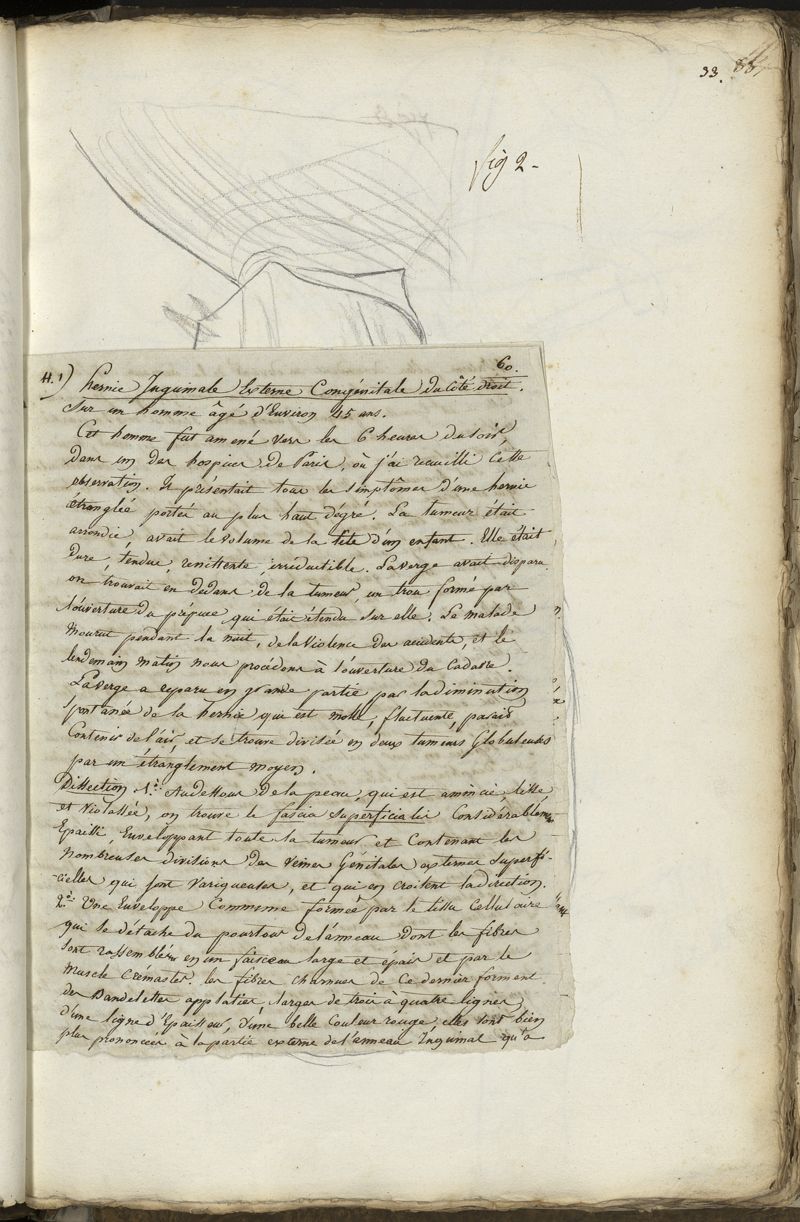 33.
fig 2-
60.
H. 1) hernie Inguinale Externe Congénitale du Côté droit.
Sur un homme âgé d'Environ 45 ans.
Cet homme fut amené vers les 6 heures du soir,
dans un des hospices de Paris, où j'ai recueilli Cette
observation. Il présentait tous les simptômes d'une hernie
étranglée portée au plus haut dégré. La tumeur était
arrondie, avait le volume de la tête d'un enfant. Elle était
dure, tendue, renittente, irréductible. La verge avait disparu
on trouvait en dedans de la tumeur, un trou formé par
l'ouverture du prépuce qui était étendu sur elle. Le malade
mourut pendant la nuit, de la Violence des accidents, et le
lendemain matin nous procédons à l'ouverture du Cadavre.
La verge a reparu en grande partie par la diminution
spontanée de la hernie qui est molle, fluctuente, parait
Contenir de l'air, et se trouve divisée en deux tumeurs Globuleuses
par un étranglement moyen.
Dissection 1.° Au dessous de la peau, qui est amincie, lisse,
et Violassée, on trouve le fascia superficialis Considérablem
Epaissi, Enveloppant toute la tumeur et Contenant les
nombreuses divisions des Veines Génitales externes superfi-
-cielles qui sont variqueuses, et qui en Croisent la direction.
2.° Une Enveloppe Commune formée par le tissu Cellulaire
qui se détache du pourtour de l'anneau dont les fibres
sont rassemblées en un faisceau large et épais et par le
Muscle Crémaster. les fibres charnues de Ce dernier forment
des Bandelettes applaties larges de trois à quatre lignes,
d'une ligne d'Epaisseur, d'une belle Couleur rouge, elles sont bien
plus prononcées à la partie externe de l'anneau Inguinal qu'à